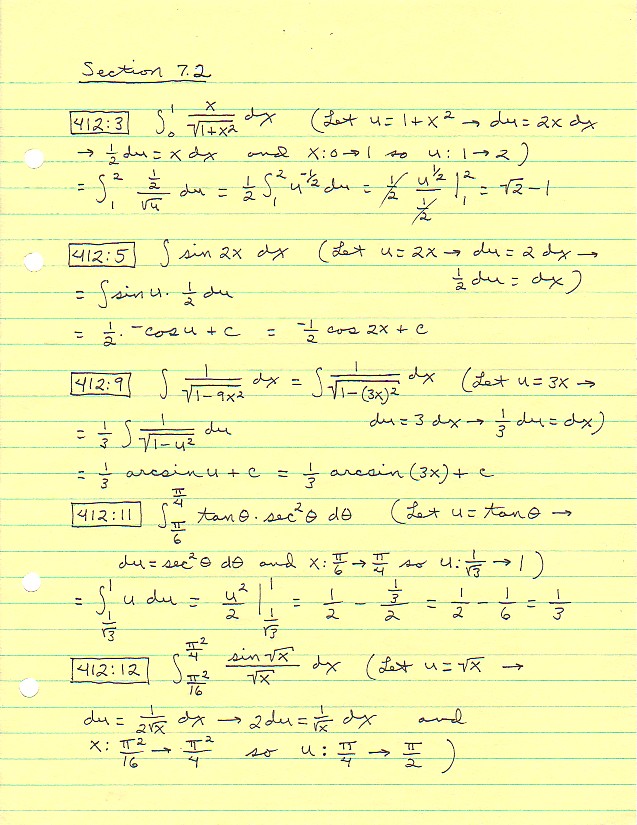 Section 7.2
412:3 ∫₀¹ x/√(1+x²) dx (Let u = 1+x² → du = 2x dx
→ ½ du = x dx and x: 0→1 so u: 1→2)
= ∫₁² ½/√u du = ½ ∫₁² u^(-1/2) du = ½ u^(1/2)/½ |₁² = √2 - 1
412:5 ∫ sin 2x dx (Let u = 2x → du = 2 dx →
½ du = dx)
= ∫ sin u · ½ du
= ½ · -cos u + c = -½ cos 2x + c
412:9 ∫ 1/√(1-9x²) dx = ∫ 1/√(1-(3x)²) dx (Let u = 3x →
du = 3 dx → ⅓ du = dx)
= ⅓ ∫ 1/√(1-u²) du
= ⅓ arcsin u + c = ⅓ arcsin (3x) + c
412:11 ∫_(π/6)^(π/4) tan θ · sec² θ dθ (Let u = tan θ →
du = sec² θ dθ and x: π/6 → π/4 so u: 1/√3 → 1)
= ∫_(1/√3)^1 u du = u²/2 |_(1/√3)^1 = 1/2 - (1/3)/2 = 1/2 - 1/6 = 1/3
412:12 ∫_(π²/16)^(π²/4) sin √x/√x dx (Let u = √x →
du = 1/(2√x) dx → 2du = 1/√x dx and
x: π²/16 → π²/4 so u: π/4 → π/2)